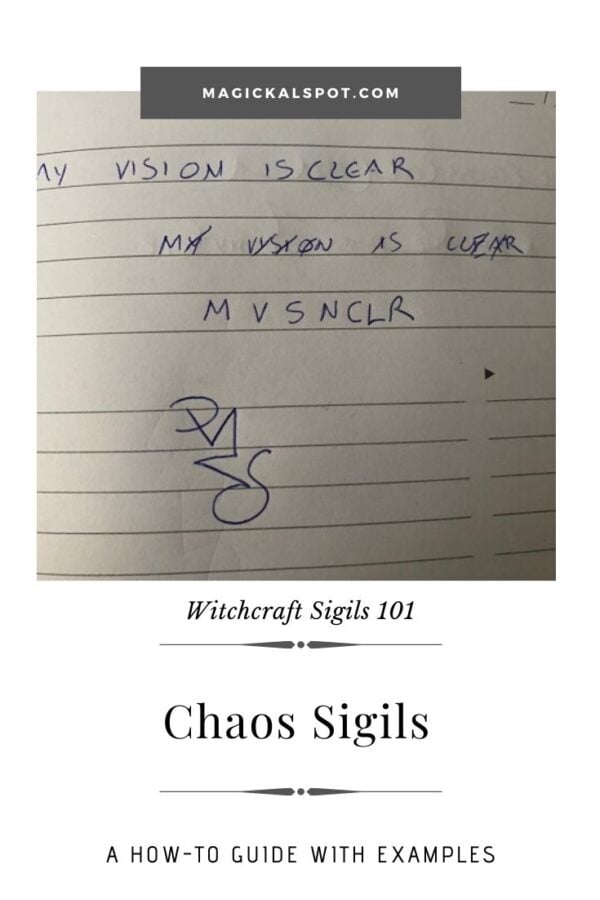 MAGICKALSPOT.COM
MY VISION IS CLEAR
MY VISION IS CLEAR
M V S N C L R
Witchcraft Sigils 101
Chaos Sigils
A HOW-TO GUIDE WITH EXAMPLES